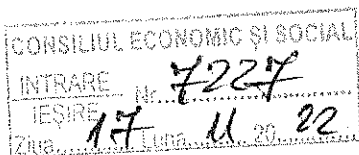 CONSILIUL ECONOMIC ȘI SOCIAL
INTRARE Nr. 7227
IEȘIRE
Ziua 17 Luna 11 20 22